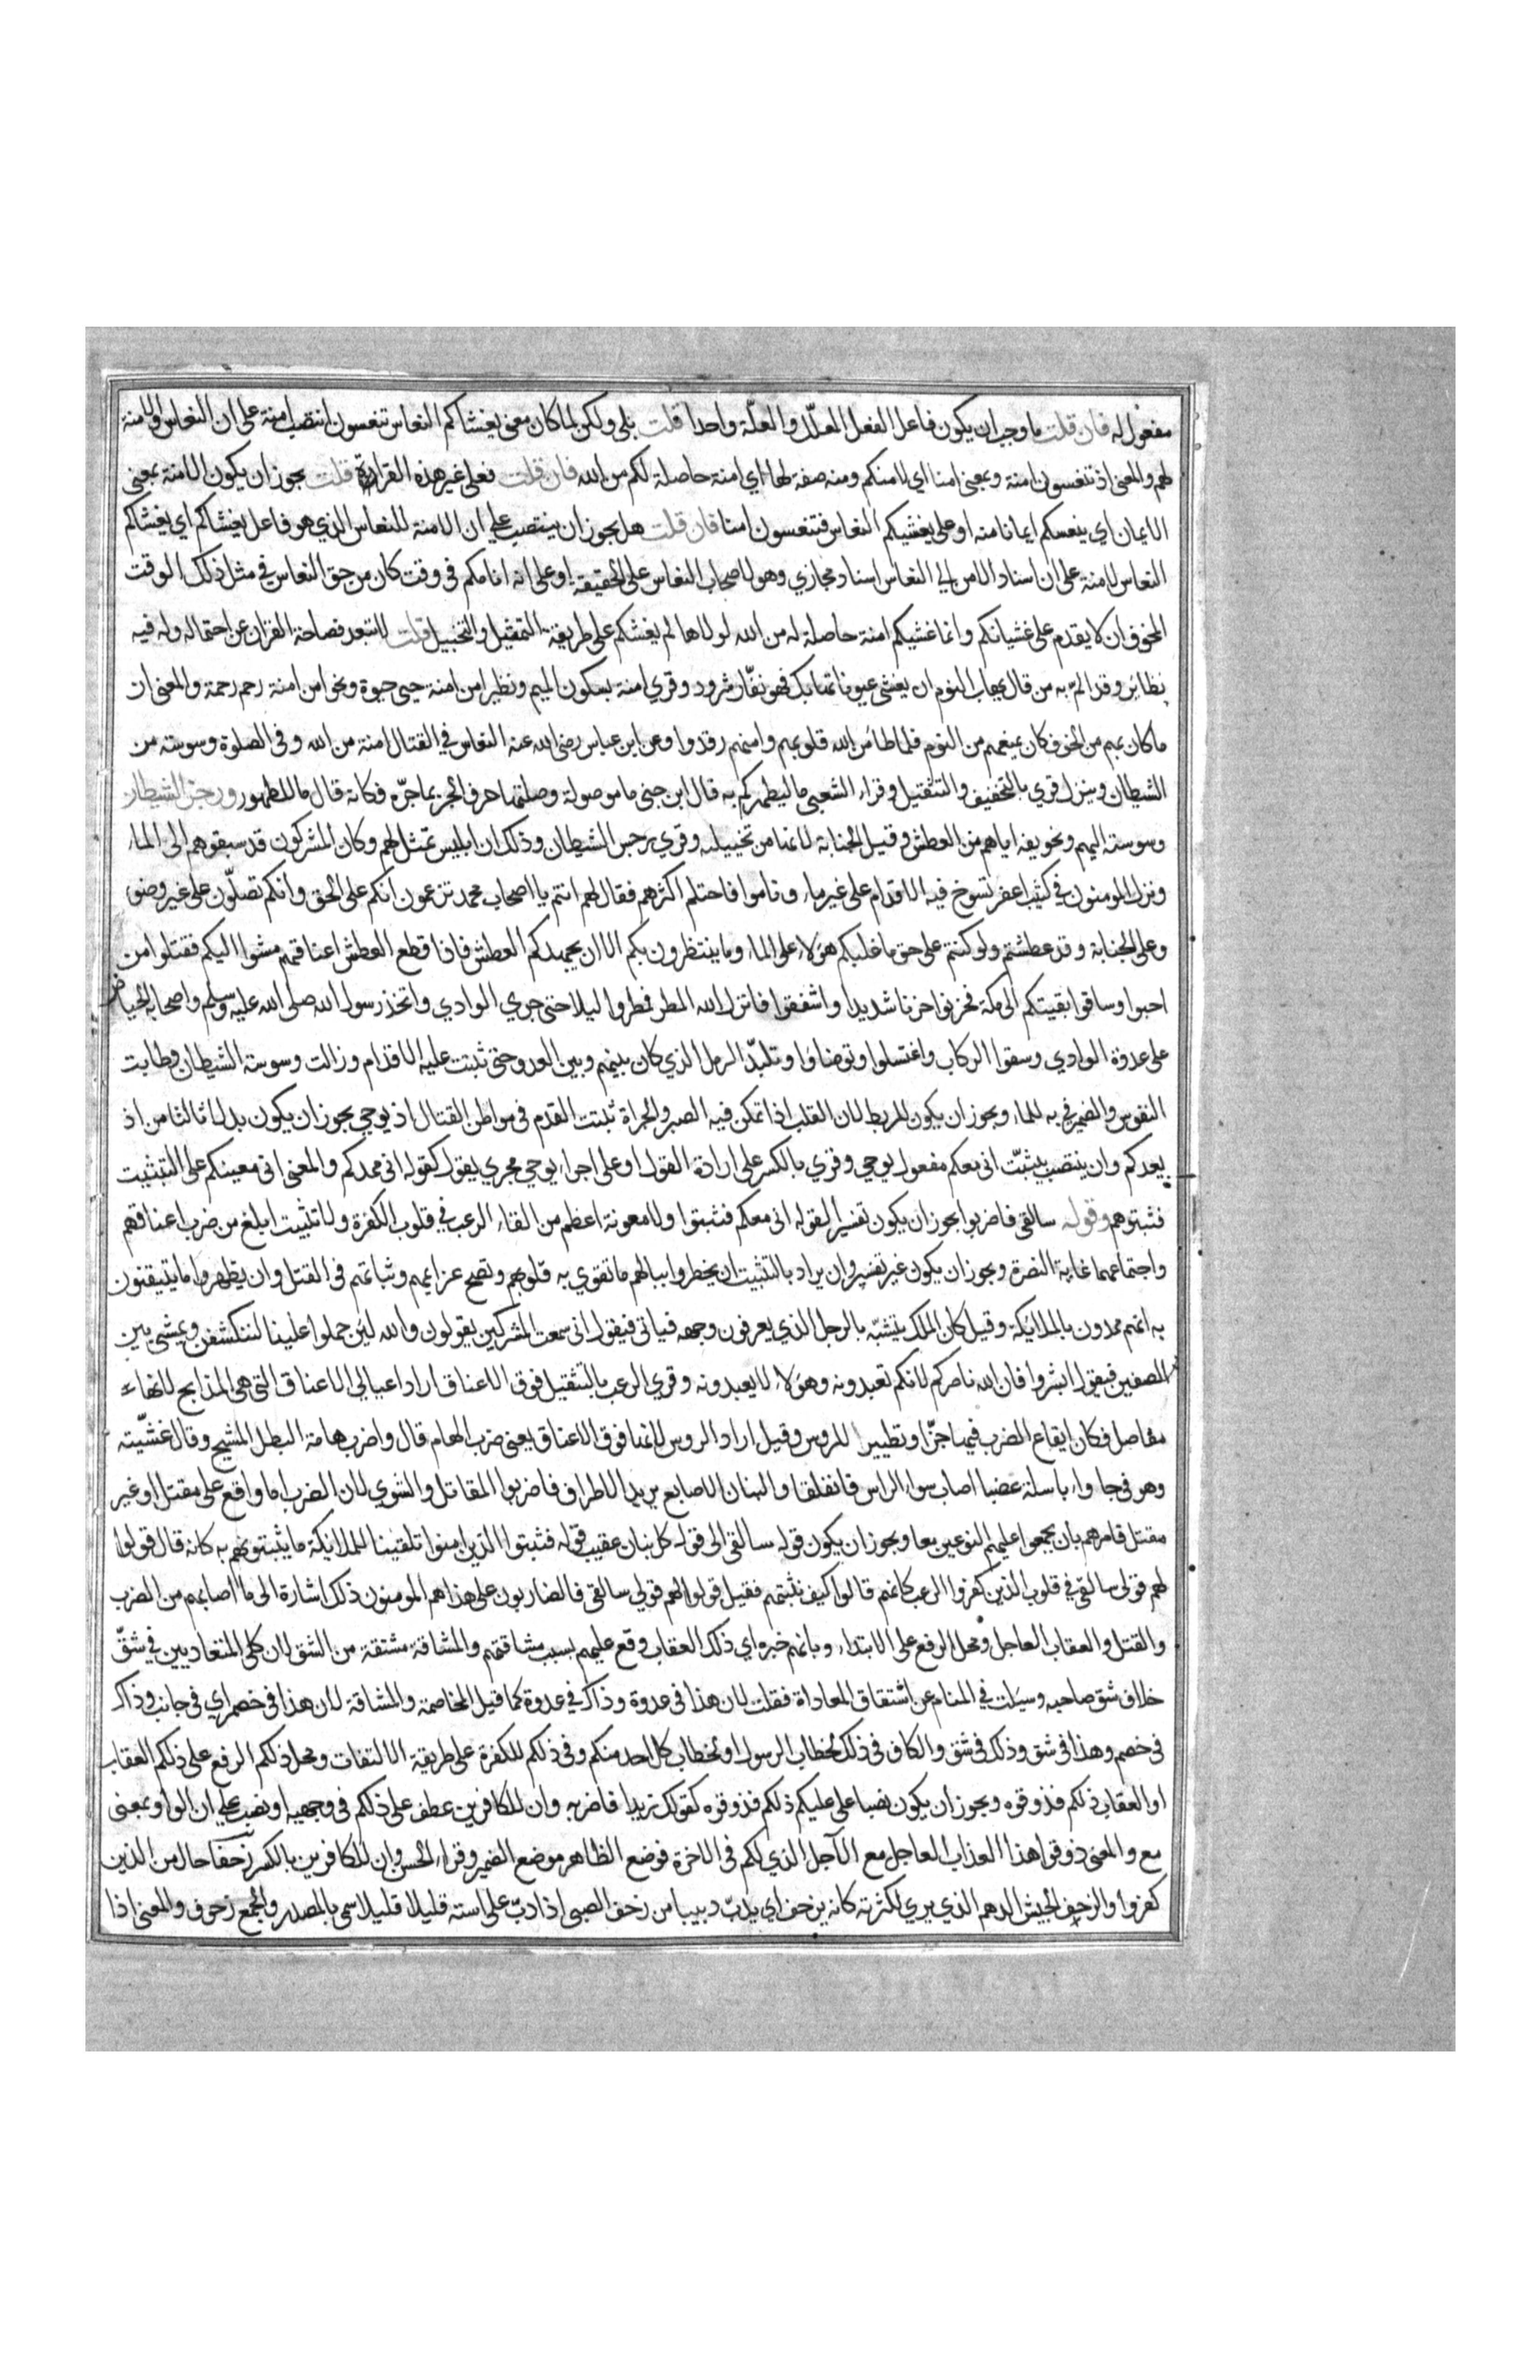 مفعول له فان قلت ما وجب ان يكون فاعل الفعل المعلّل والعلّة واحدا قلت بلى ولكن لما كان معنى يغشاكم النعاس تنعسون انتصب امنة على ان النعاس والامنة
لهم والمعنى اذ تنعسون امنة وبمعنى امنا اي لامنكم ومنه صفة لها اي امنة حاصلة لكم من الله فان قلت فعلى غير هذه القراءة قلت يجوز ان يكون الامنة بمعنى
الايمان اي ينعسكم ايمانا منه او على يغشيكم النعاس فتنعسون امنا فان قلت هل يجوز ان ينتصب على ان الامنة للنعاس الذي هو فاعل يغشاكم اي يغشاكم
النعاس لامنة على ان اسناد الامن الى النعاس اسناد مجازي وهو لاصحاب النعاس على الحقيقة او على انه انامكم في وقت كان من حق النعاس في مثل ذلك الوقت
المخوف ان لا يقدم على غشيانكم وانما غشيكم امنة حاصلة له من الله لولاها لم يغشكم على طريقة التمثيل والتخييل قلت لا تبعد فصاحة القران عن احتماله وله فيه
نظائر وقد الم به من قال يهاب النوم ان يغشى عيونا تهابك فهو نفّار شرود وقري امنة بسكون الميم ونظير امن امنة حيي حيوة ونحو امن امنة رحم رحمة والمعنى ان
ما كان بهم من الخوف كان يمنعهم من النوم فلما طامن الله قلوبهم وامنهم رقدوا وعن ابن عباس رضي الله عنه النعاس في القتال امنة من الله وفي الصلوة وسوسته من
الشيطان وينزل قري بالتخفيف والتثقيل وقراء الشعبي ما ليطهركم به قال ابن جني ما موصولة وصلتها حرف الجر بما جرّه فكانه قال ما للطهور ورجز الشيطان
وسوسته اليهم وتخويفه اياهم من العطش وقيل الجنابة لانها من تخييله وقري رجس الشيطان وذلك ان ابليس تمثل لهم وكان المشركون قد سبقوهم الى الماء
ونزل المومنون في كثيب اعفر تسوخ فيه الاقدام على غير ماء وناموا فاحتلم اكثرهم فقال لهم انتم يا اصحاب محمد تزعمون انكم على الحق وانكم تصلّون على غير وضوء
وعلى الجنابة وقد عطشتم ولو كنتم على حق ما غلبكم هؤلاء على الماء وما ينتظرون بكم الا ان يجهدكم العطش فاذا قطع العطش اعناقهم مشوا اليكم فقتلوا من
احبوا وساقوا بقيتكم الى مكة فحزنوا حزنا شديدا واشفقوا فانزل الله المطر فمطروا ليلا حتى جري الوادي واتخذ رسول الله صلى الله عليه وسلم واصحابه الحياض
على عدوة الوادي وسقوا الركاب واغتسلوا وتوضاؤا وتلبّد الرمل الذي كان بينهم وبين العدو حتى ثبتت عليه الاقدام وزالت وسوسة الشيطان وطابت
النفوس والضمير في به للماء ويجوز ان يكون للربط لان القلب اذا تمكن فيه الصبر والجراة ثبتت القدم في مواطن القتال اذ يوحي يجوز ان يكون بدلا ثالثا من اذ
يعدكم وان ينتصب بيثبّت اني معكم مفعول يوحي وقري بالكسر على ارادة القول او على اجراء يوحي مجري يقول كقوله اني ممدكم والمعنى اني معينكم على التثبيت
فثبتوهم وقوله سالقي فاضربوا يجوز ان يكون تفسيرا لقوله اني معكم فثبتوا ولا معونة اعظم من القاء الرعب في قلوب الكفرة ولا تثبيت ابلغ من ضرب اعناقهم
واجتماعهما غاية النصرة ويجوز ان يكون غير تفسير وان يراد بالتثبيت ان يخطروا ببالهم ما تقوي به قلوبهم وتصح عزايمهم وثباتهم في القتل وان يظهروا ما يتيقنون
به انهم ممدون بالملائكة وقيل كان الملك يتشبّه بالرجل الذي يعرفون وجهه فياتي فيقول اني سمعت المشركين يقولون والله لئن حملوا علينا لننكشفن ويمشي بين
الصفين فيقول ابشروا فان الله ناصركم لانكم تعبدونه وهؤلاء لا يعبدونه وقري الرعب بالتثقيل فوق الاعناق اراد اعالي الاعناق التي هي المذابح لانها
مفاصل فكان ايقاع الضرب فيها حزّا وتطييرا للروس وقيل اراد الروس لانها فوق الاعناق يعني ضرب الهام قال واضرب هامة البطل المشيح وقال غشّيته
وهو في جاواء باسلة عضبا اصاب سواء الراس فانفلقا والبنان الاصابع يريد الاطراف فاضربوا المقاتل والشوي لان الضرب اما واقع على مقتل او غير
مقتل فامرهم بان يجمعوا عليهم النوعين معا ويجوز ان يكون قوله سالقي الى قوله كل بنان عقيب قوله فثبتوا الذين امنوا تلقينا للملائكة ما يثبتونهم به كانه قال قولوا
لهم قولي سالقي في قلوب الذين كفروا الرعب كانهم قالوا كيف نثبتهم فقيل قولوا لهم قولي سالقي فالضاربون على هذا هم المومنون ذلك اشارة الى ما اصابهم من الضرب
والقتل والعقاب العاجل ومحل الرفع على الابتداء وبانهم خبره اي ذلك العقاب وقع عليهم بسبب مشاقتهم والمشاقة مشتقة من الشق لان كلى المتعاديين في شقّ
خلاف شق صاحبه وسيلت في المنام عن اشتقاق المعاداة فقلت لان هذا في عدوة وذاك في عدوة كما قيل المخاصمة والمشاقة لان هذا في خصم اي في جانب وذاك
في خصم وهذا في شق وذلك في شق والكاف في ذلك لخطاب الرسول او لخطاب كل احد منكم وفي ذلكم للكفرة على طريقة الالتفات ومحل ذلكم الرفع على ذلكم العقاب
او العقاب ذلكم فذوقوه ويجوز ان يكون نصبا على عليكم ذلكم فذوقوه كقولك زيدا فاضربه وان للكافرين عطف على ذلكم في وجهيه او نصب على ان الواو بمعنى
مع والمعنى ذوقوا هذا العذاب العاجل مع الآجل الذي لكم في الاخرة فوضع الظاهر موضع الضمير وقراء الحسن وان للكافرين بالكسر زحفا حال من الذين
كفروا والزحف الجيش الدهم الذي يري لكثرته كانه يزحف اي يدبّ دبيبا من زحف الصبي اذا دبّ على استه قليلا قليلا سمي بالمصدر والجمع زحوف والمعنى اذا